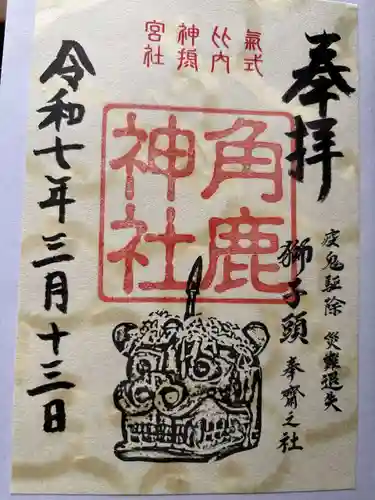 奉拝
氣比神宮
式内摂社
角鹿
神社
疫鬼駆除
獅子頭
奉齋之社
令和七年三月十三日